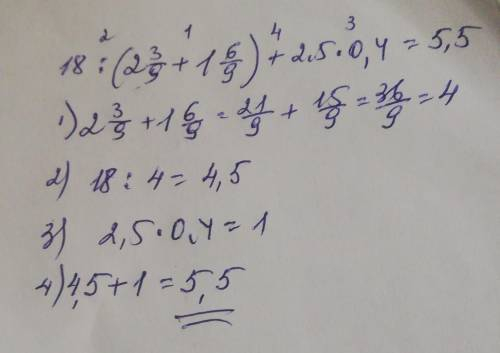 2 1 4 3
18 : (2 3/9 + 1 6/9) + 2.5 · 0,4 = 5,5
1) 2 3/9 + 1 6/9 = 21/9 + 15/9 = 36/9 = 4
2) 18 : 4 = 4,5
3) 2,5 · 0,4 = 1
4) 4,5 + 1 = 5,5